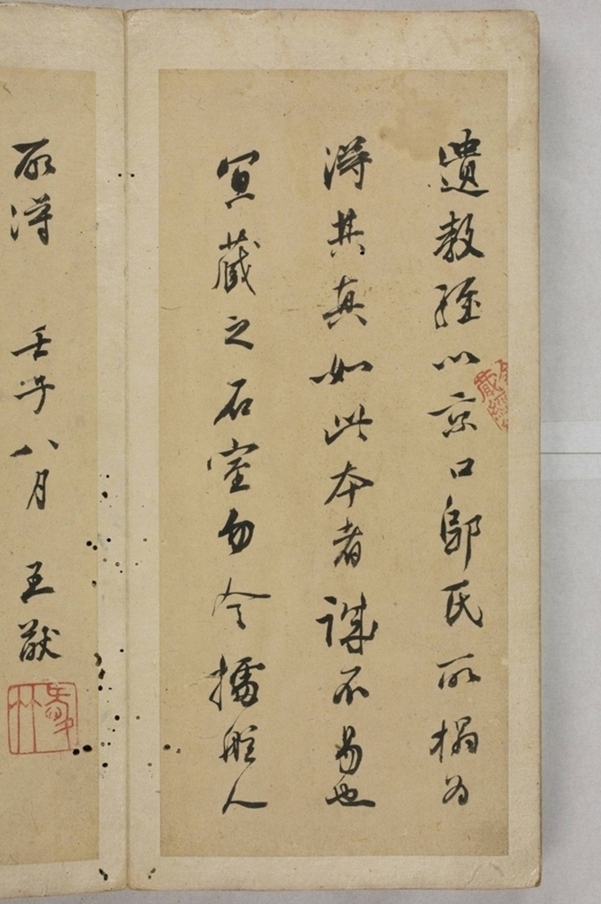 遺教經以京口鄔氏所榻為
得其真如此本者誠不易也
宜藏之石室勿令擂舵人
所得　壬子八月　王猷